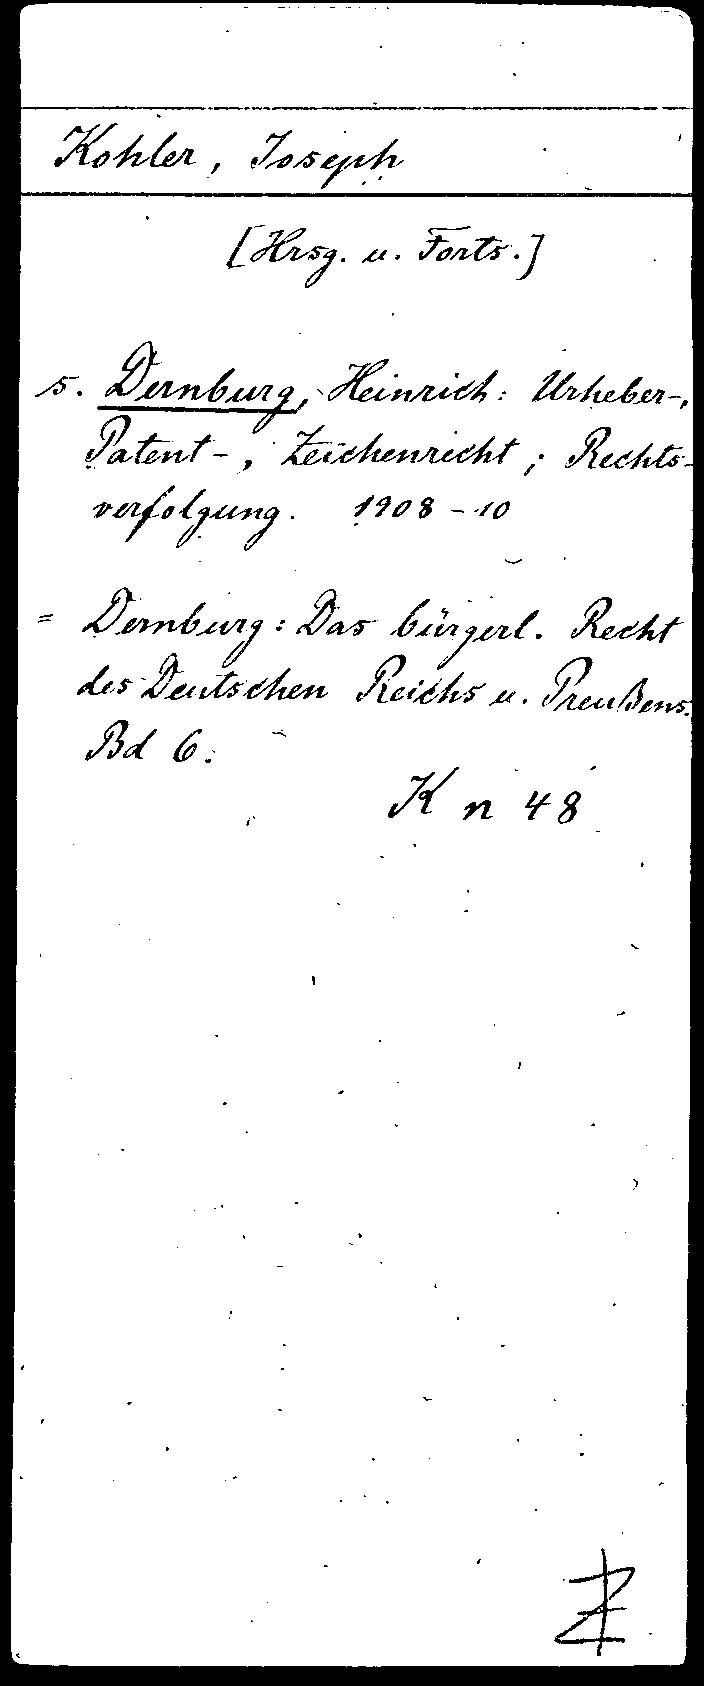 Kohler, Joseph
[Hrsg. u. Forts.]
s. Dernburg, Heinrich: Urheber-,
Patent-, Zeichenrecht; Rechts-
verfolgung. 1908-10
= Dernburg: Das bürgerl. Recht
des Deutschen Reichs u. Preußens.
Bd 6.
K n 48